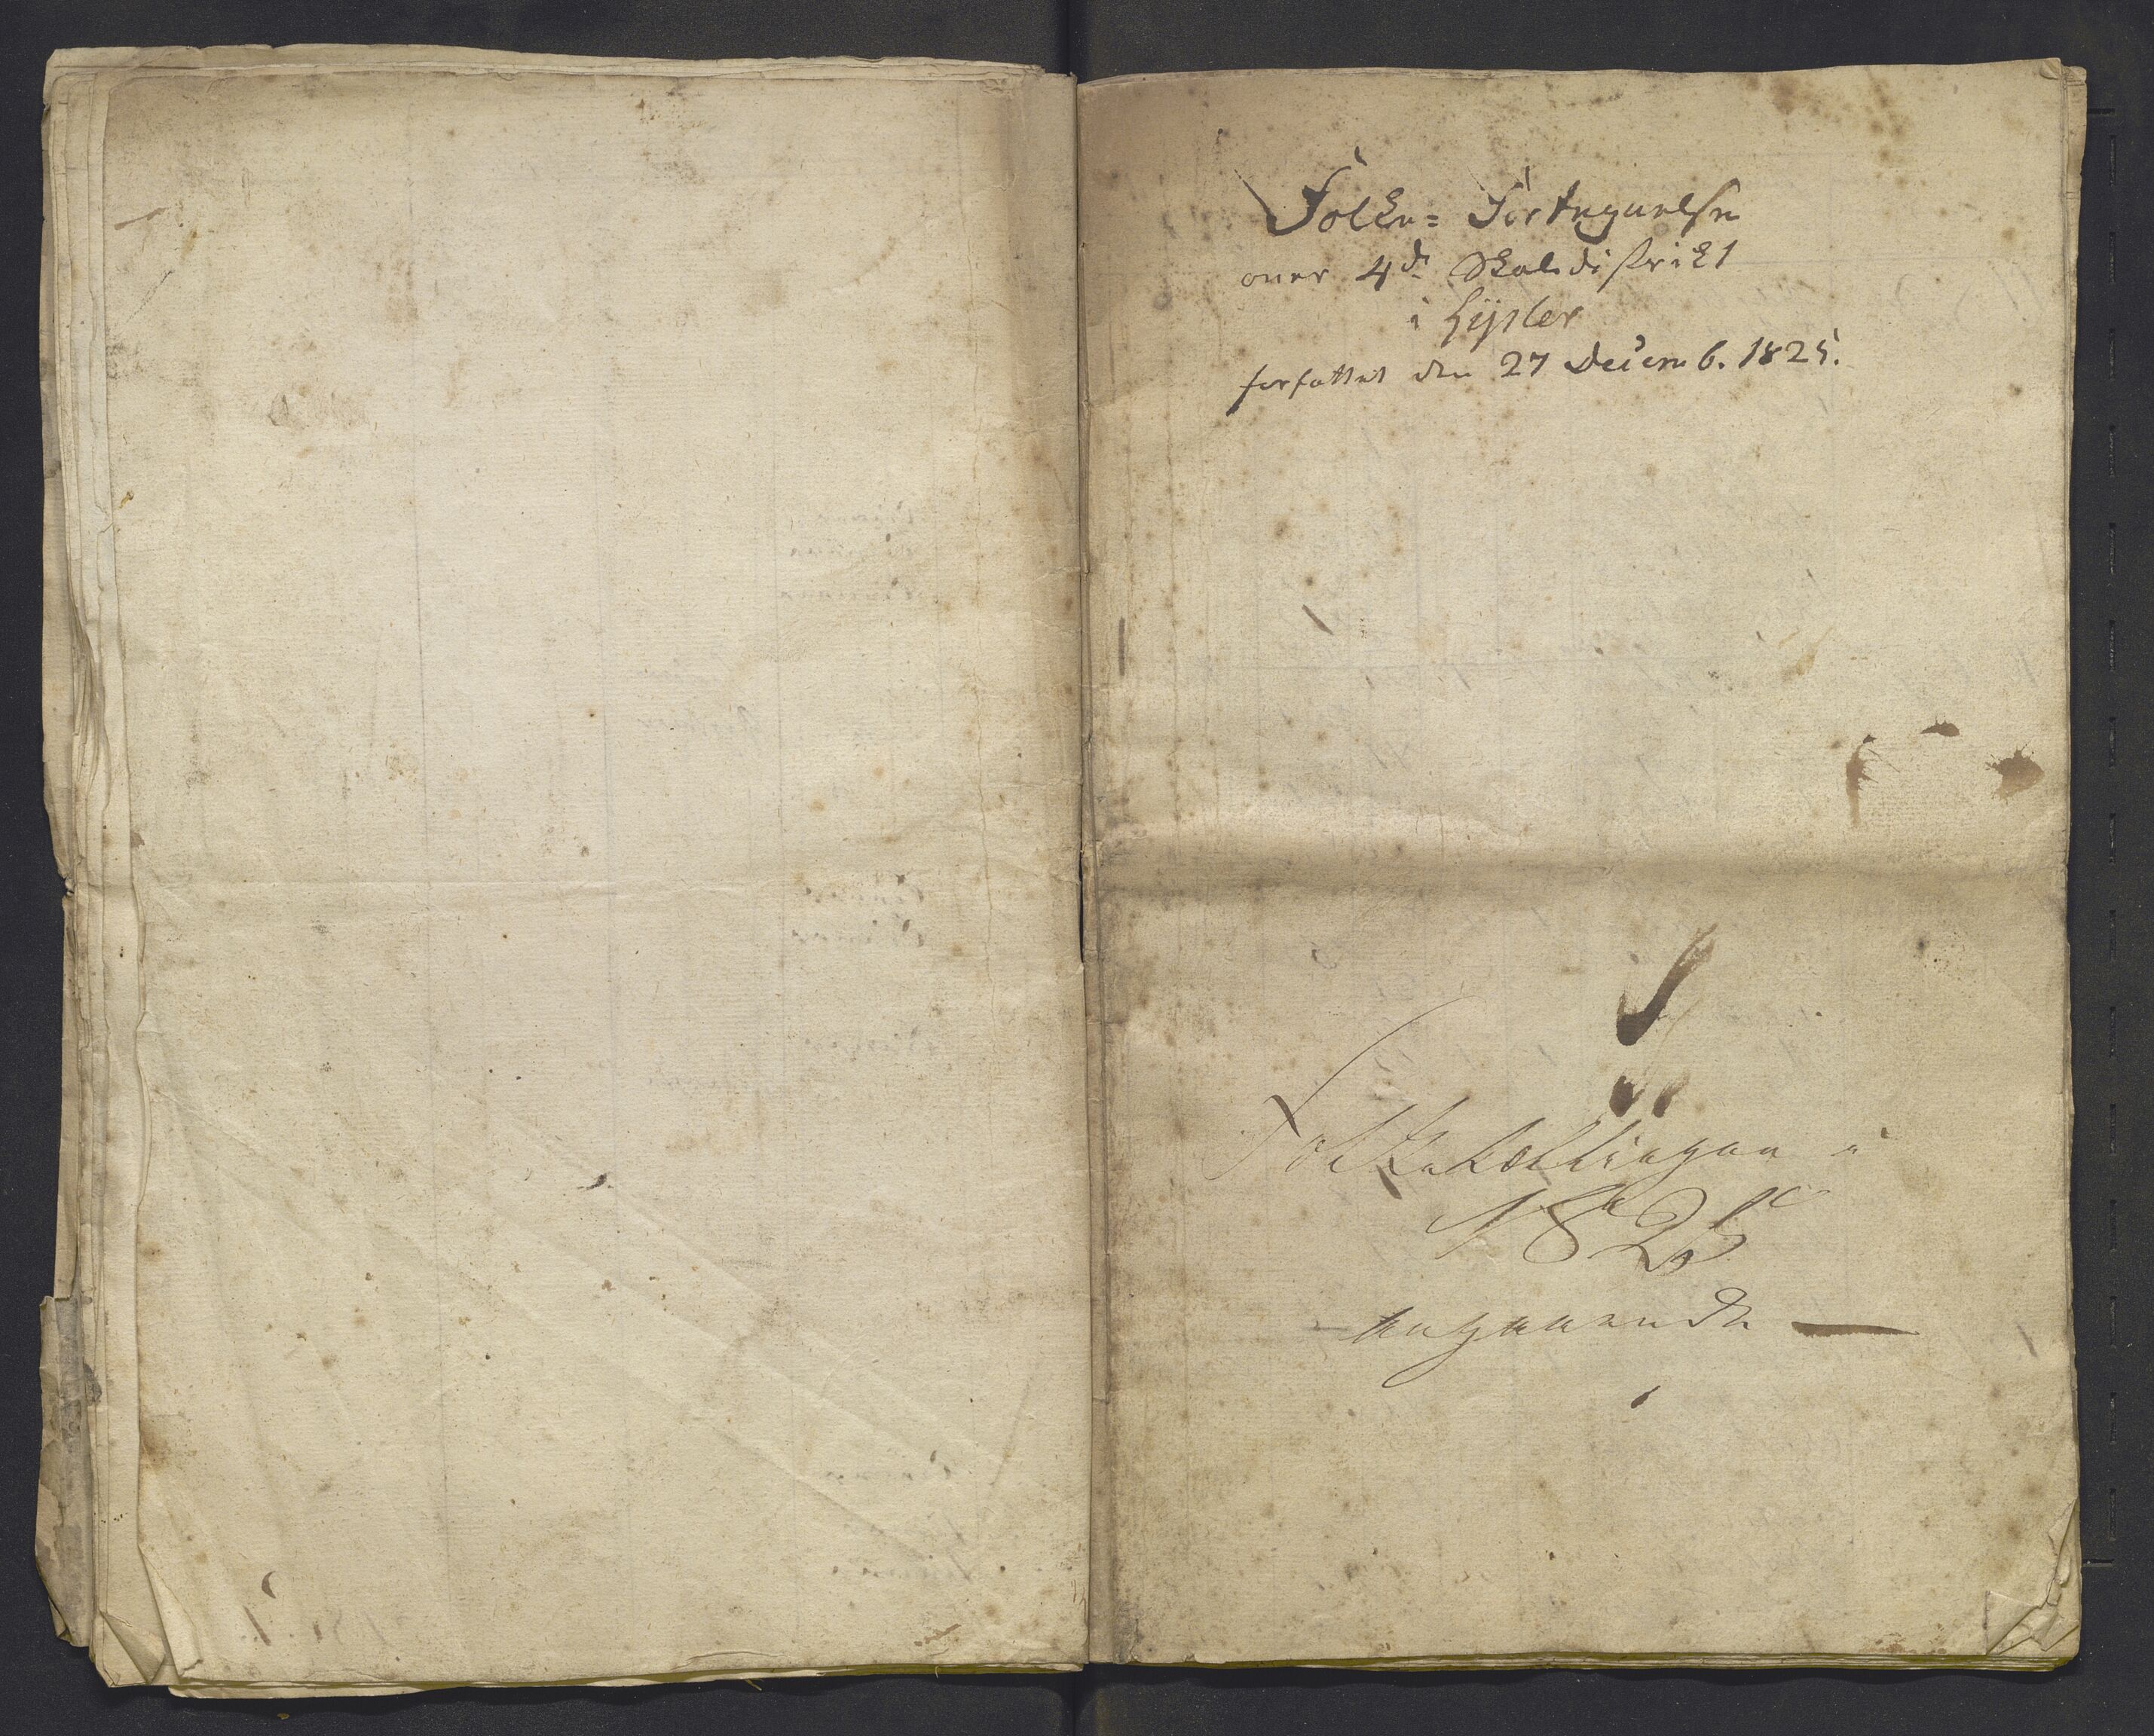 Folke= Fortegnelse
over 4de Skoledistrikt
i Lyster
forfattet den 27 Decemb. 1825.
Folketællingen i
1825
angaaende —